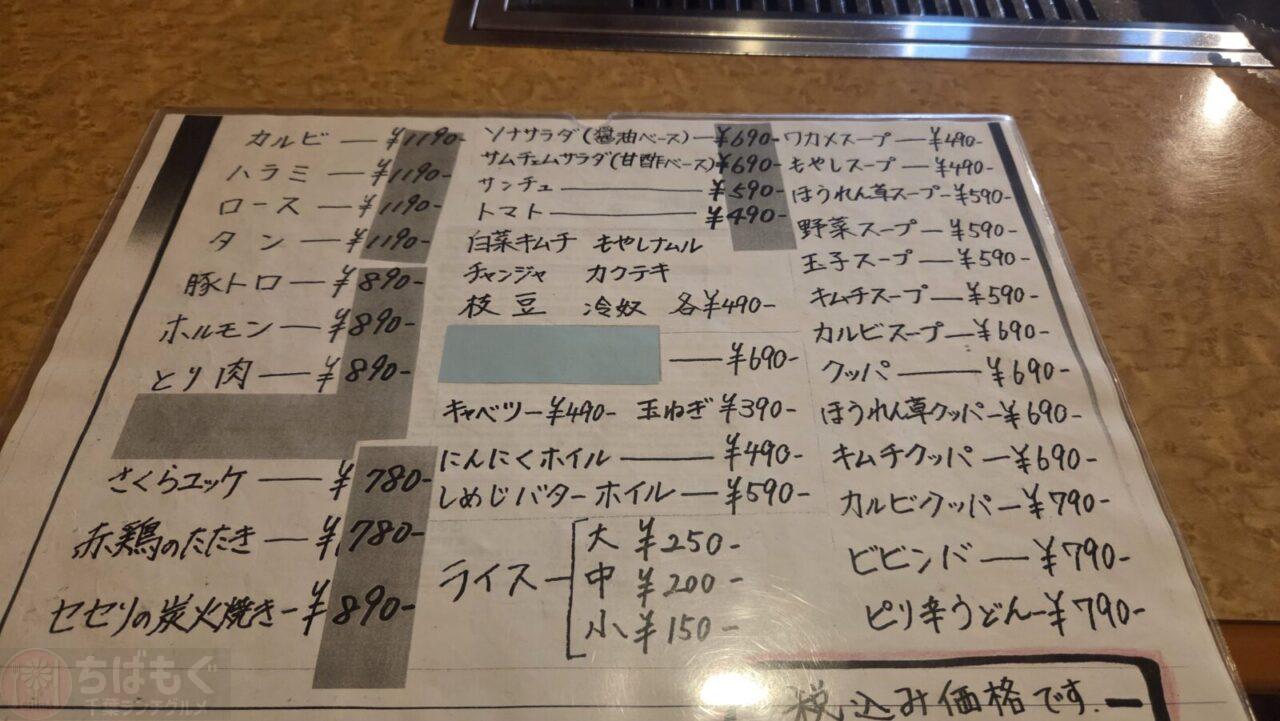 カルビ — ¥1190-
ハラミ — ¥1190-
ロース — ¥1190-
タン — ¥1190-
豚トロ — ¥890-
ホルモン — ¥890-
とり肉 — ¥890-
さくらユッケ — ¥780-
赤鶏のたたき — ¥780-
セセリの炭火焼き — ¥890-
ソナサラダ(醤油ベース) — ¥690-
サムチェムサラダ(甘酢ベース) ¥690-
サンチュ — ¥590-
トマト — ¥490-
白菜キムチ もやしナムル
チャンジャ カクテキ
枝豆 冷奴 各¥490-
— ¥690-
キャベツ — ¥490- 玉ねぎ ¥390-
にんにくホイル — ¥490-
しめじバターホイル — ¥590-
ライス — 大 ¥250-
中 ¥200-
小 ¥150-
ワカメスープ — ¥490-
もやしスープ — ¥490-
ほうれん草スープ — ¥590-
野菜スープ — ¥590-
玉子スープ — ¥590-
キムチスープ — ¥590-
カルビスープ — ¥690-
クッパ — ¥690-
ほうれん草クッパ — ¥690-
キムチクッパ — ¥690-
カルビクッパ — ¥790-
ビビンバ — ¥790-
ピリ辛うどん — ¥790-
税込み価格です.
ちばもぐ
千葉ランチグルメ